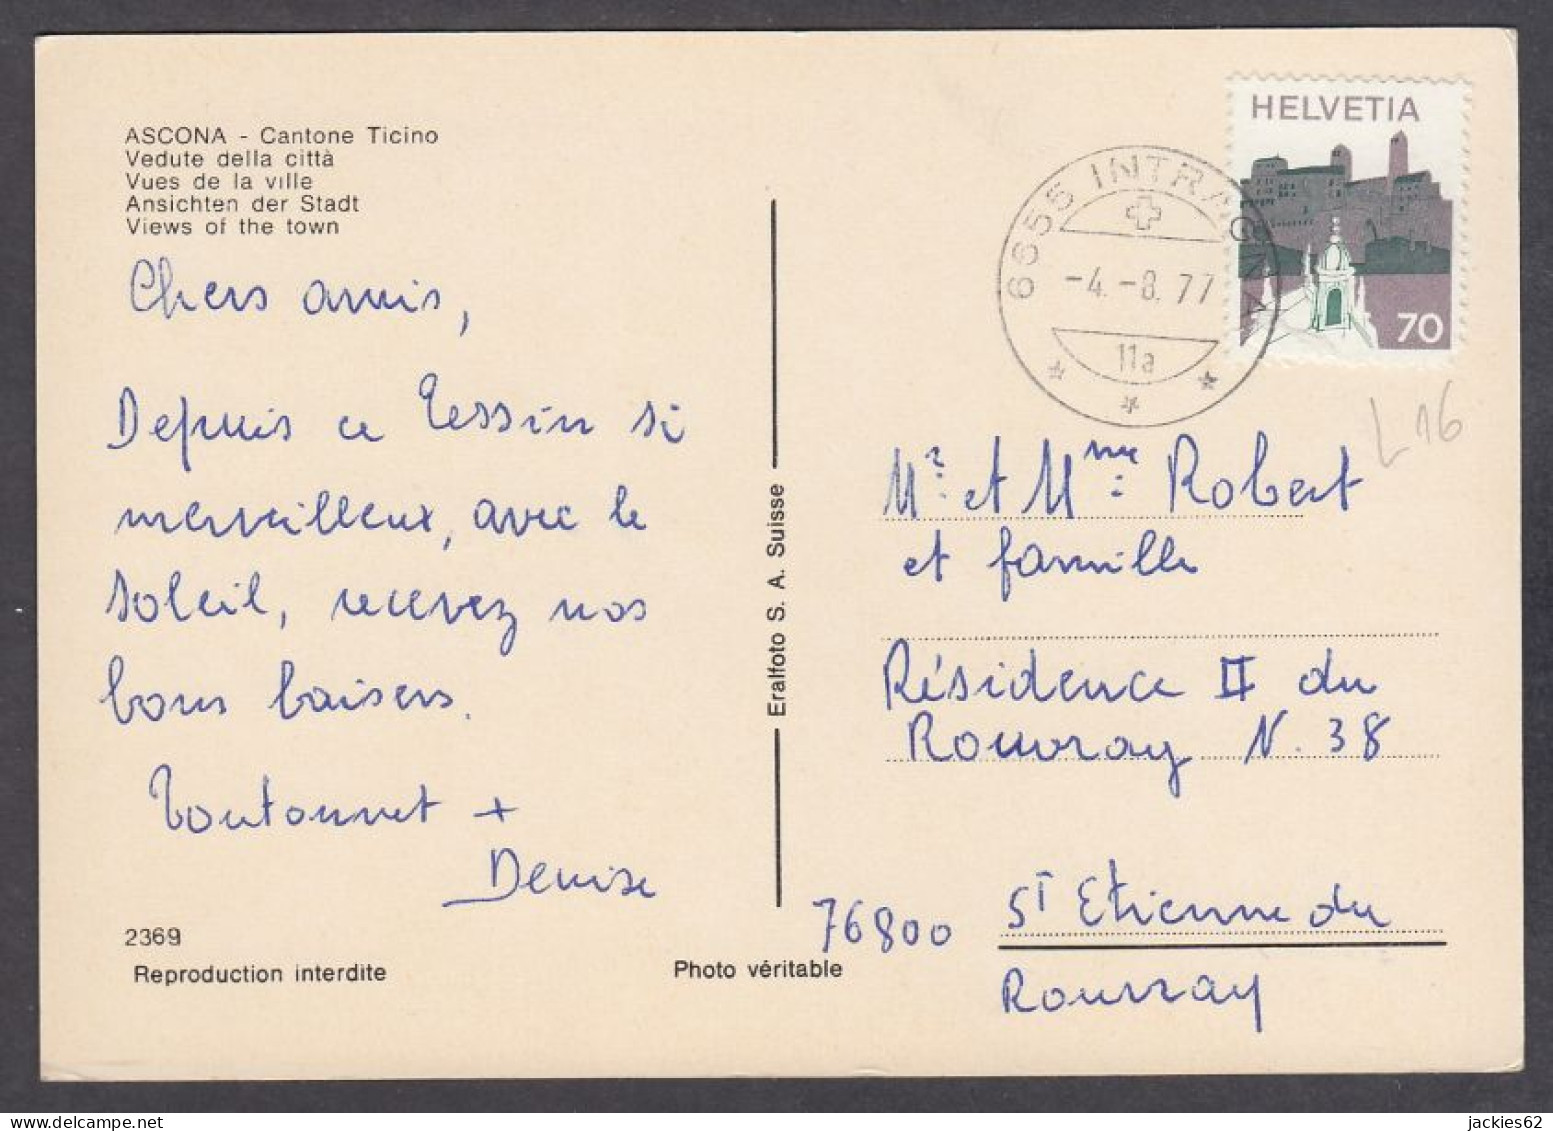 ASCONA - Cantone Ticino
Vedute della città
Vues de la ville
Ansichten der Stadt
Views of the town
Chers amis,
Depuis ce Tessin si
merveilleux, avec le
soleil, recevez nos
bons baisers.
Toutounet +
Denise
2369
Reproduction interdite
Photo véritable
Eralfoto S. A. Suisse
HELVETIA
70
6655 INTRAGNA
-4.-8.77
11a
L16
Mr. et Mme. Robert
et famille
Résidence II du
Rouvray N. 38
76800 St Etienne du
Rouvray
jackies62